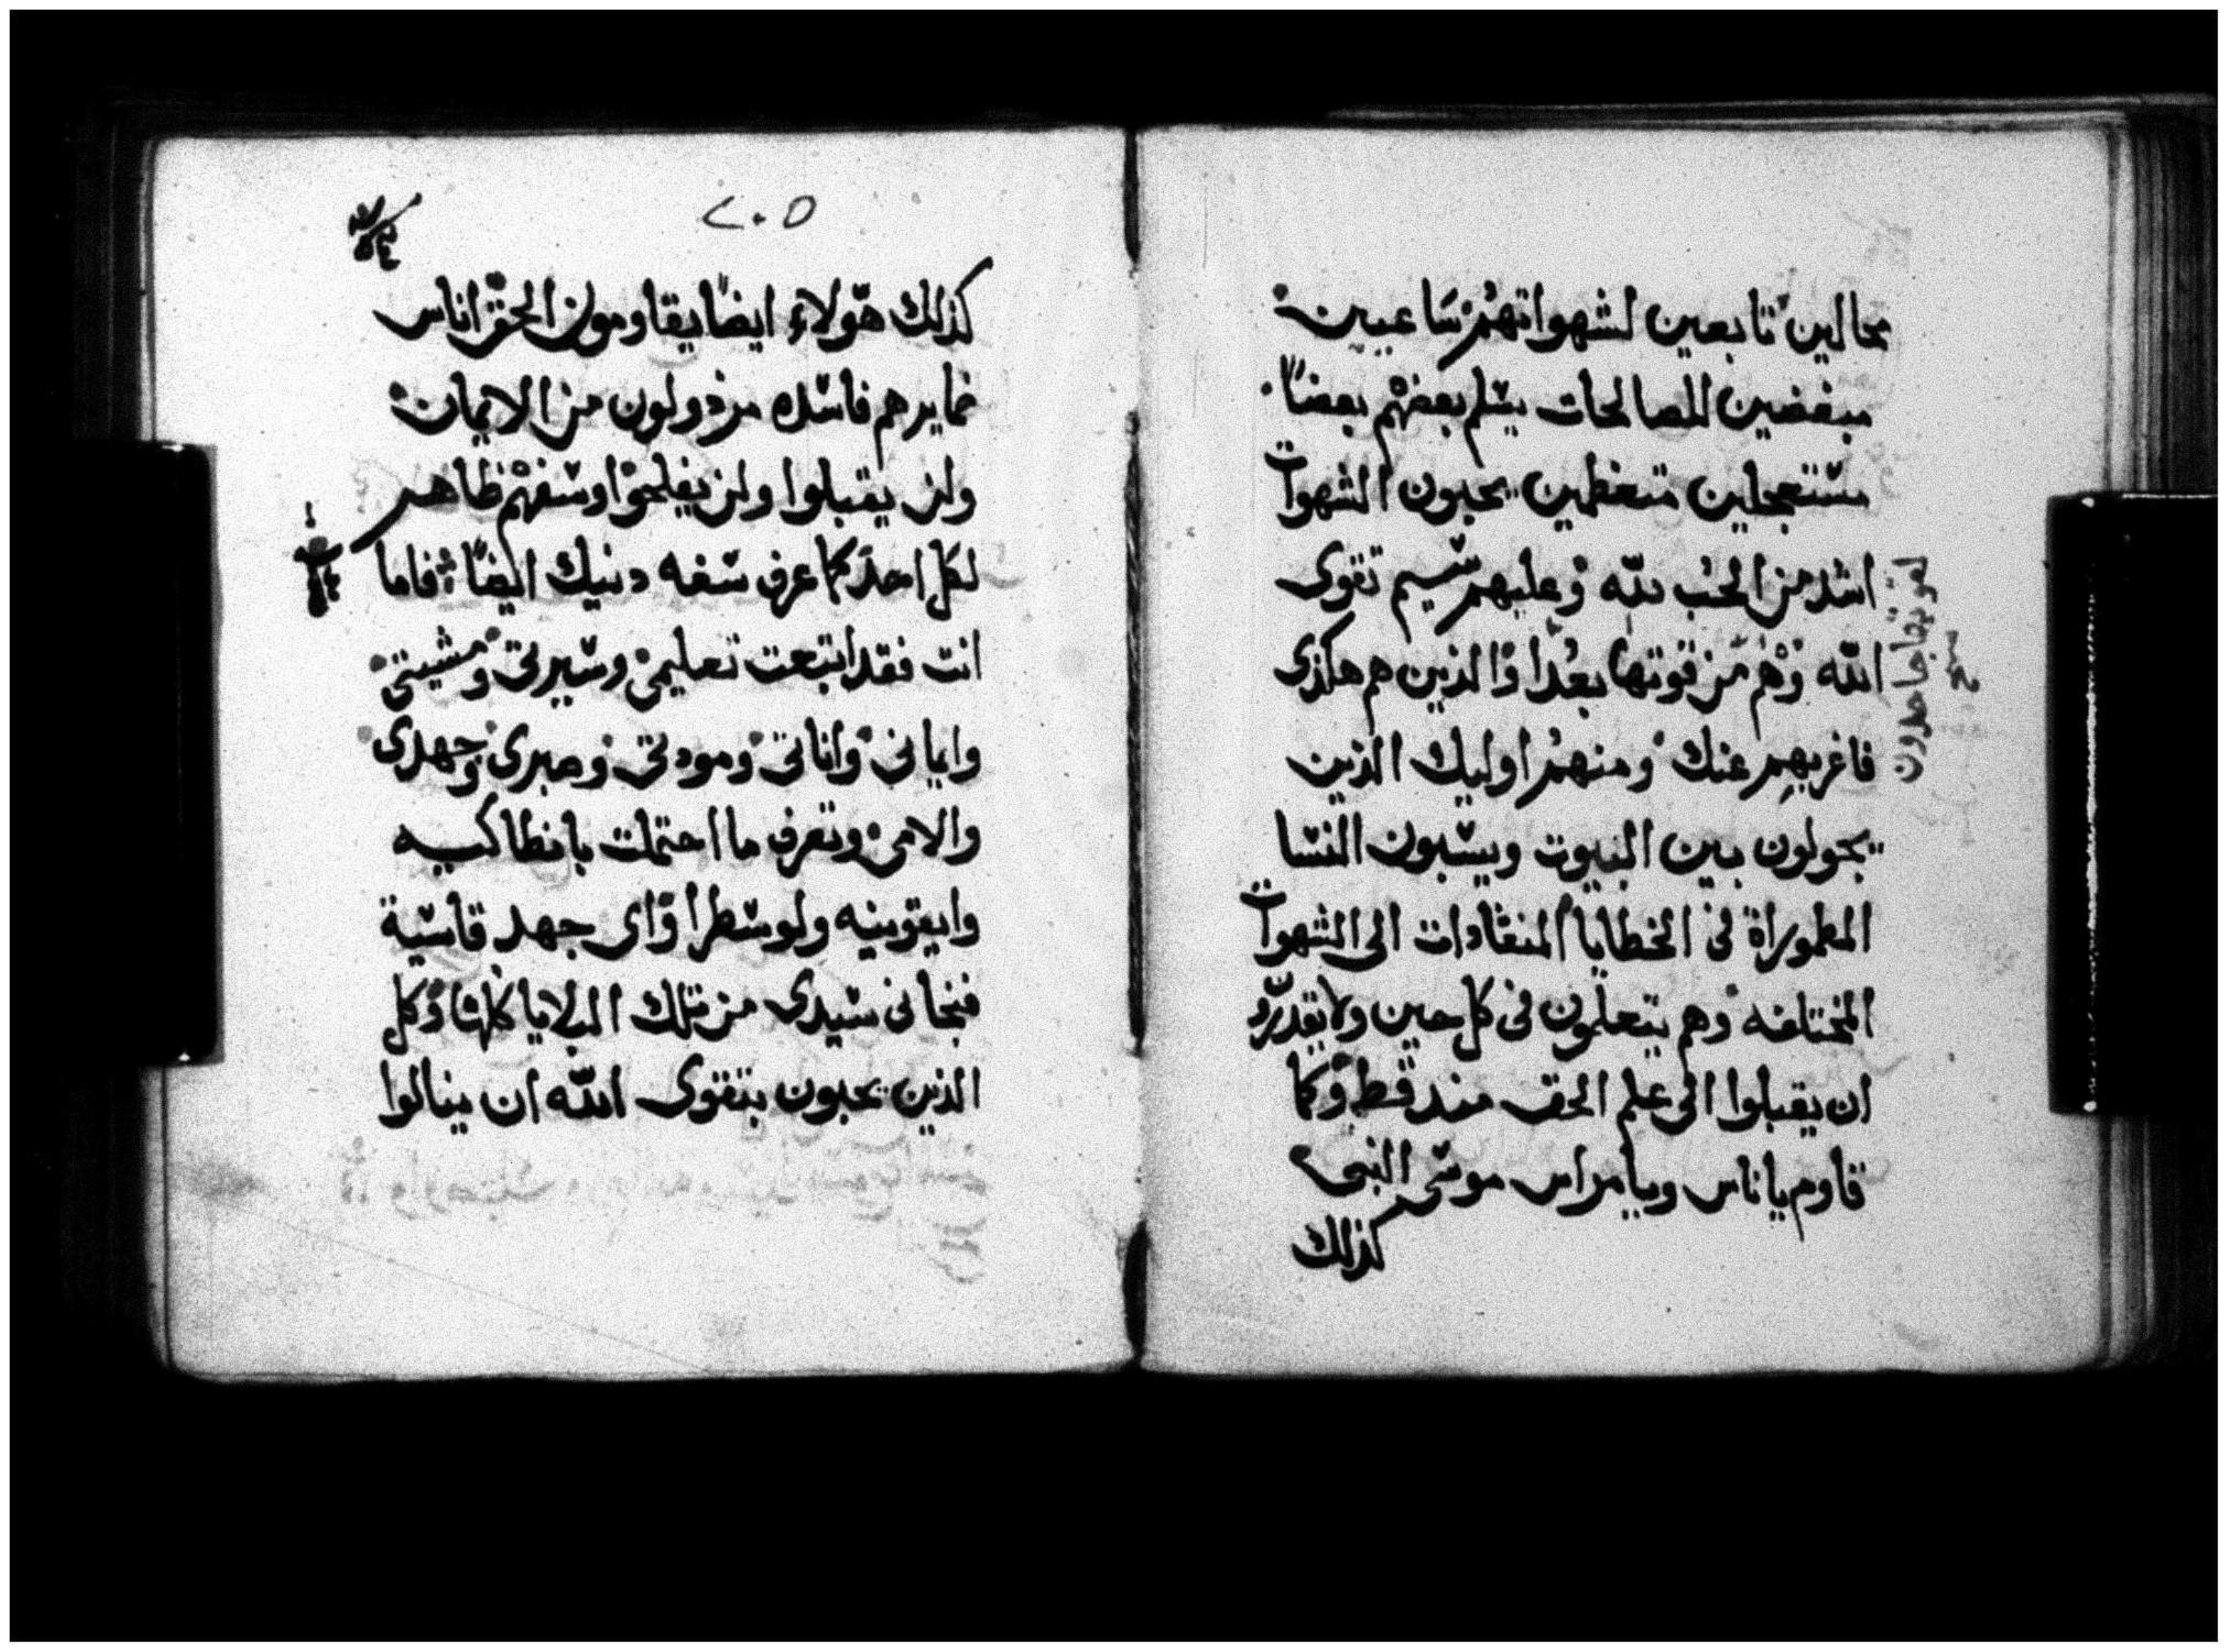 محالين تابعين لشهواتهم ساعيين
مبغضين للصالحات يسلم بعضهم بعضاً
مستعجلين متعظمين يحبون الشهوات
اشد من الحب لله وعليهم شيم تقوى
الله وهم من قوتها بعدا والذين هم هكذى
فاغربهم عنك ومنهم اوليك الذين
يجولون بين البيوت ويسبون النسا
المطموراة فى الخطايا المنقادات الى الشهوات
المختلفه وهم يتعلمون فى كل حين ولا يقدرو
ان يقبلوا الى علم الحق منذ قط وكما
قاوم ياناس ويامراس موسى النبى
كذلك
لقوتها جاحدون
٢٠٥
كذلك هولاء ايضاً يقاومون الحق اناس
ضمايرهم فاسده مرذولون من الايمان
ولن يقبلوا ولن يفلحوا وسفههم ظاهر
لكل احد كما عرف سفه دنيك ايضاً فاما
انت فقد اتبعت تعليمى وسيرتى ومشيتى
وايمانى واناتى ومودتى وصبرى وجهدى
والامى وتعرف ما احتملت بانطاكيه
وايقونيه ولوسطرا واى جهد قاسية
فنجانى سيدى من تلك البلايا كلها وكل
الذين يحبون بتقوى الله ان ينالوا